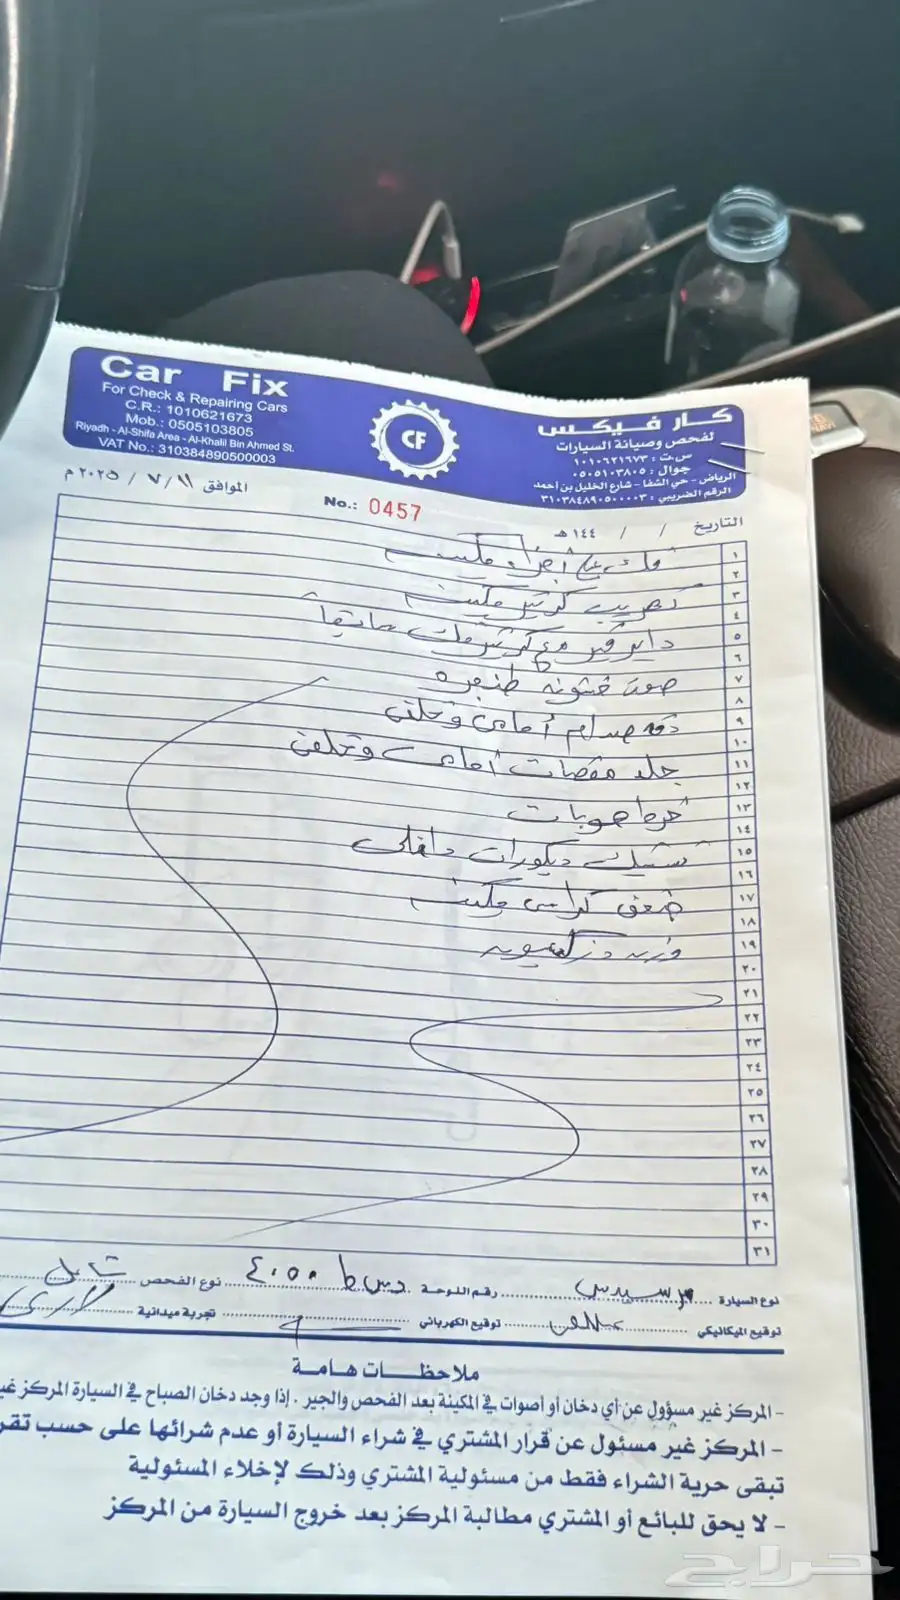 Car Fix
For Check & Repairing Cars
C.R.: 1010621673
Mob.: 0505103805
Riyadh - Al-Shifa Area - Al-Khalil Bin Ahmed St.
VAT No.: 310384890500003
CF
كار فيكس
لفحص وصيانة السيارات
س.ت : ١٠١٠٦٢١٦٧٣
جوال : ٠٥٠٥١٠٣٨٠٥
الرياض - حي الشفا - شارع الخليل بن أحمد
الرقم الضريبي : ٣١٠٣٨٤٨٩٠٥٠٠٠٠٣
التاريخ / / ١٤٤هـ
No.: 0457
الموافق ١١ / ٧ / ٢٠٢٥ م
١
٢ أجزاء مكينه
٣
٤ تهريب كرتير مكينه
٥
٦ دايفر مع كرتير سابقا
٧
٨ صوت خشونه طنبره
٩
١٠ دقه صدام أمامي وخلفي
١١
١٢ جلد مقصات أمامي وخلفي
١٣
١٤ صوبات
١٥
١٦ ديكورات داخلي
١٧
١٨ ضعف كراسي مكينه
١٩
٢٠
٢١
٢٢
٢٣
٢٤
٢٥
٢٦
٢٧
٢٨
٢٩
٣٠
٣١
نوع السيارة مرسيدس رقم اللوحة د س ط ٤٠٥٠ نوع الفحص شامل
توقيع الميكانيكي توقيع الكهربائي تجربة ميدانية
ملاحظات هامة
- المركز غير مسؤول عن أي دخان أو أصوات في المكينة بعد الفحص والجير . إذا وجد دخان الصباح في السيارة المركز غير
- المركز غير مسئول عن قرار المشتري في شراء السيارة أو عدم شرائها على حسب تقر
تبقى حرية الشراء فقط من مسئولية المشتري وذلك لإخلاء المسئولية
- لا يحق للبائع أو المشتري مطالبة المركز بعد خروج السيارة من المركز
حراج